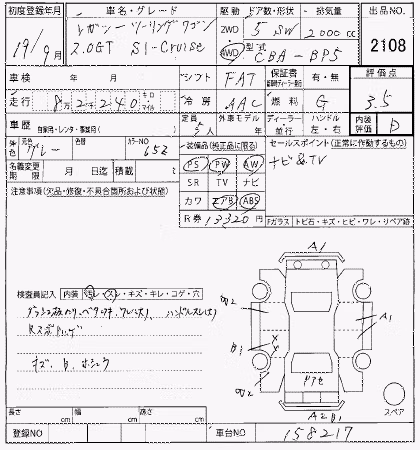 初度登録年月 車名・グレード 駆動 ドア数・形状・排気量 出品NO.
19/9月 レガシーツーリングワゴン 2WD 5 SW 2000cc 2108
2.0GT SI-Cruise 4WD 型式 CBA-BP5
車検 年 月 シフト FAT 保証書 有・無 評価点
走行 8万2240 キロ マイル 冷房 AAC 燃料 G 3.5
車歴 自家用・レンタ・事業用( ) 定員 5人 外車モデル 年 ディーラー 並行 ハンドル 左・右 内装 D
外色 元色 グレー 色替 カラーNO 652 装備品(純正品に限る) セールスポイント(正常に作動するもの)
名義変更期限 月 日迄 積載 PS PW AW ナビ&TV
注意事項(欠品・修復・不具合箇所および状態) SR TV ナビ
カワ エアB ABS
R券 13320円
Fガラス トビ石・キズ・ヒビ・ワレ・リペア跡
A1
検査員記入 内装 汚レ・スレ・キズ・キレ・コゲ・穴
W2
A1
B1
キズ、
W2
ドアセ
スペア
A2 B1
長さ cm 幅 cm 高さ cm
登録NO 車台NO 158217